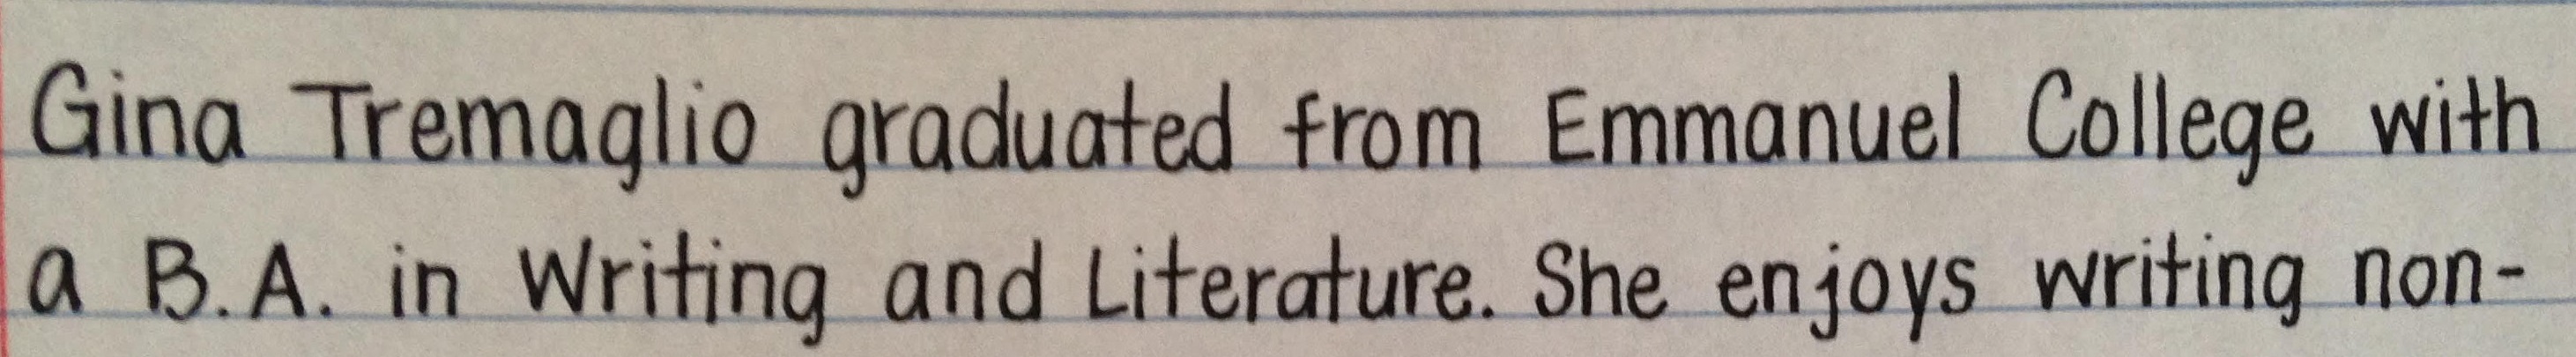 Gina Tremaglio graduated from Emmanuel College with
a B.A. in Writing and Literature. She enjoys writing non-